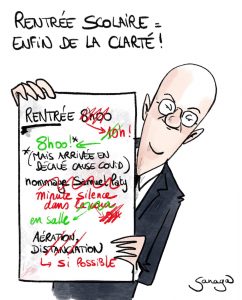 RENTRÉE SCOLAIRE =
ENFIN DE LA CLARTÉ !
RENTRÉE 8h00
→ 10h !
8h00 !*
*(MAIS ARRIVÉE EN
DÉCALÉ CAUSE COVID)
hommage Samuel Paty
minute silence
dans la cour
en salle
AÉRATION,
DISTANCIATION
↳ SI POSSIBLE
Sanaga